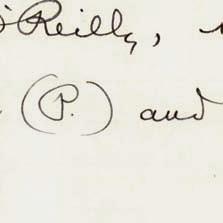 O'Reilly,
(P.) and